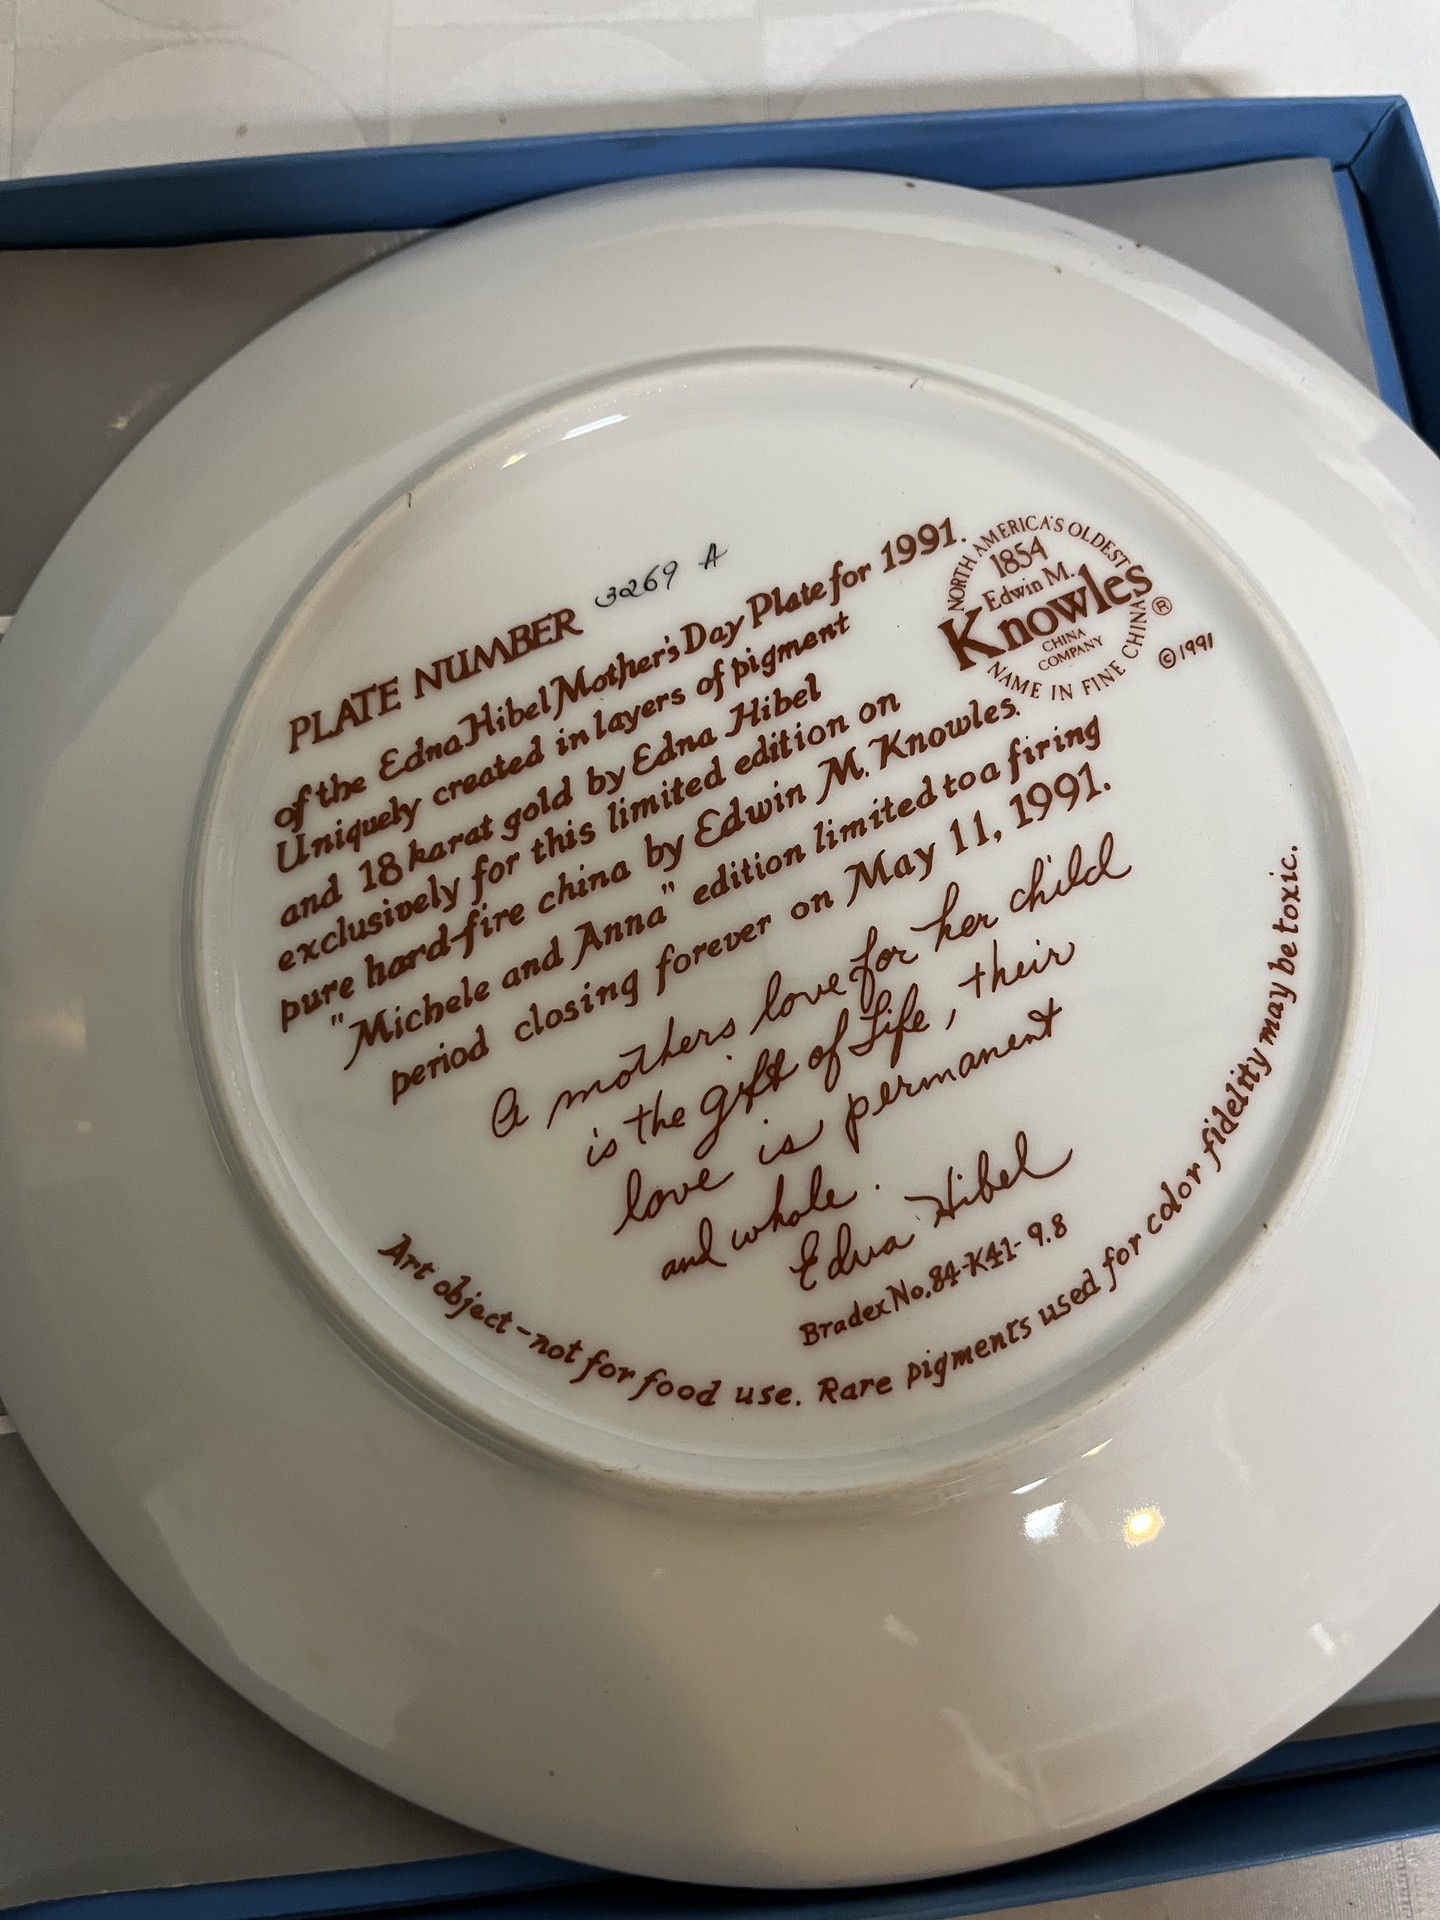 PLATE NUMBER 3269 A
of the Edna Hibel Mother's Day Plate for 1991.
Uniquely created in layers of pigment
and 18 karat gold by Edna Hibel
exclusively for this limited edition on
pure hard-fire china by Edwin M. Knowles.
"Michele and Anna" edition limited to a firing
period closing forever on May 11, 1991.
NORTH AMERICA'S OLDEST
1854
Edwin M.
Knowles ®
CHINA
COMPANY
NAME IN FINE CHINA
© 1991
A mothers love for her child
is the gift of Life, their
love is permanent
and whole.
Edna Hibel
Bradex No. 84-K41-9.8
Art object-not for food use. Rare pigments used for color fidelity may be toxic.